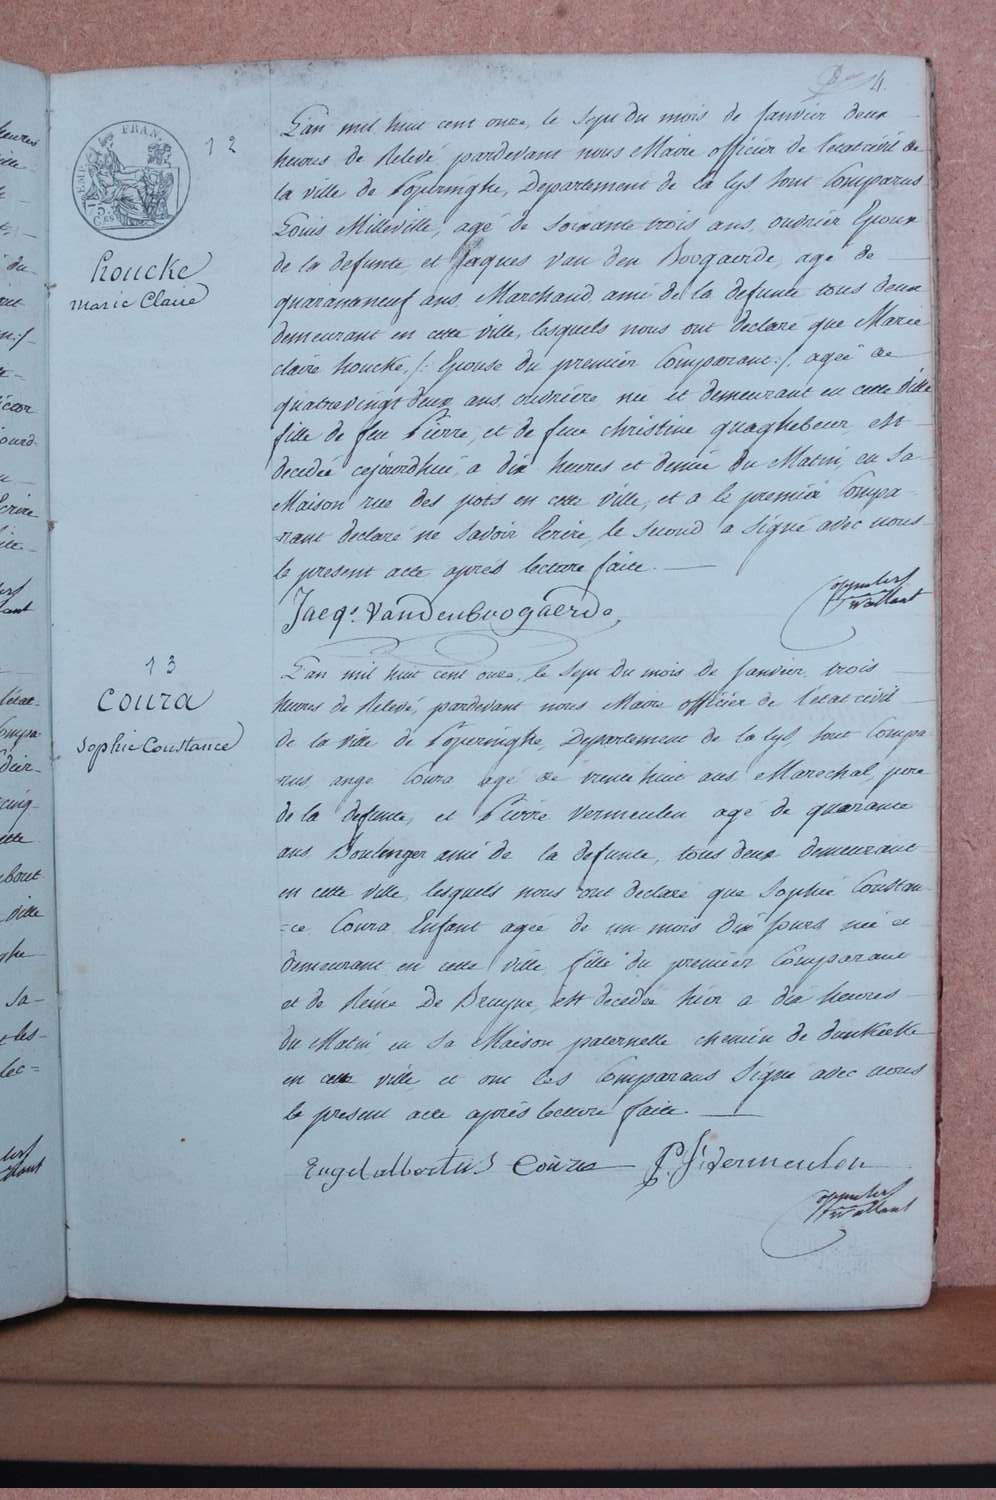 4.
12
houcke
marie Claire
L'an mil huit cent onze, le Sept du mois de Janvier deux
heures de Relevé, pardevant nous Maire officier de l'état civil de
la ville de Poperinghe, Departement de la Lys sont Comparus
Louis Milleville, agé de Soixante trois ans, ouvrier Epoux
de la defunte, et Jaques Van den Boogaerde, agé de
quaranteneuf ans, Marchand, ami de la defunte tous deux
demeurant en cette ville, lesquels nous ont declaré que Marie
claire houcke, /: Epouse du premier Comparant :/, agée de
quatrevingt deux ans, ouvrière née et demeurant en cette ville
fille de feu Pierre, et de feue christine quaghebeur, est
decedée cejourdhui, a dix heures et demie du Matin, en Sa
Maison rue des pots en cette ville, et a le premier Compa-
rant declaré ne Savoir Ecrire, le Second a Signé avec nous
le present acte après lecture faite.
Jacqs. Vandenboogaerde
13
Coura
Sophie Constance
L'an mil huit cent onze, le Sept du mois de Janvier, trois
heures de Relevé, pardevant nous Maire officier de l'état civil
de la ville de Poperinghe, Departement de la Lys sont Compa-
rus, ange Coura agé de trente huit ans, Marechal, pere
de la defunte, et Pierre Vermeulen agé de quarante
ans, Boulenger ami de la defunte, tous deux demeurant
en cette ville, lesquels nous ont declaré que Sophie Constan-
=ce, Coura, Enfant agée de un mois Dix Jours, née et
demeurant en cette ville fille du premier Comparant
et de Reine De Bruyne, est decedée hier a dix heures
du Matin en Sa Maison paternelle chemin de dunkerke
en cette ville, et ont les Comparans Signé avec nous
le present acte après lecture faite.
Engelalbertus Coura P. J. Vermeulen